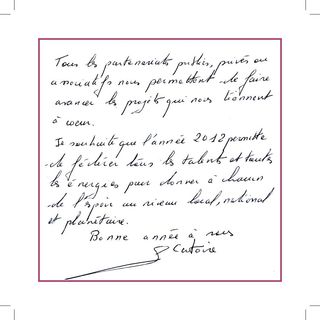 Tous les partenariats publics, privés ou
associatifs nous permettent de faire
avancer les projets qui nous tiennent
à coeur.
Je souhaite que l'année 2012 permette
de fédérer tous les talents et toutes
les énergies pour donner à chacun
de l'espoir au niveau local, national
et planétaire.
Bonne année à vous